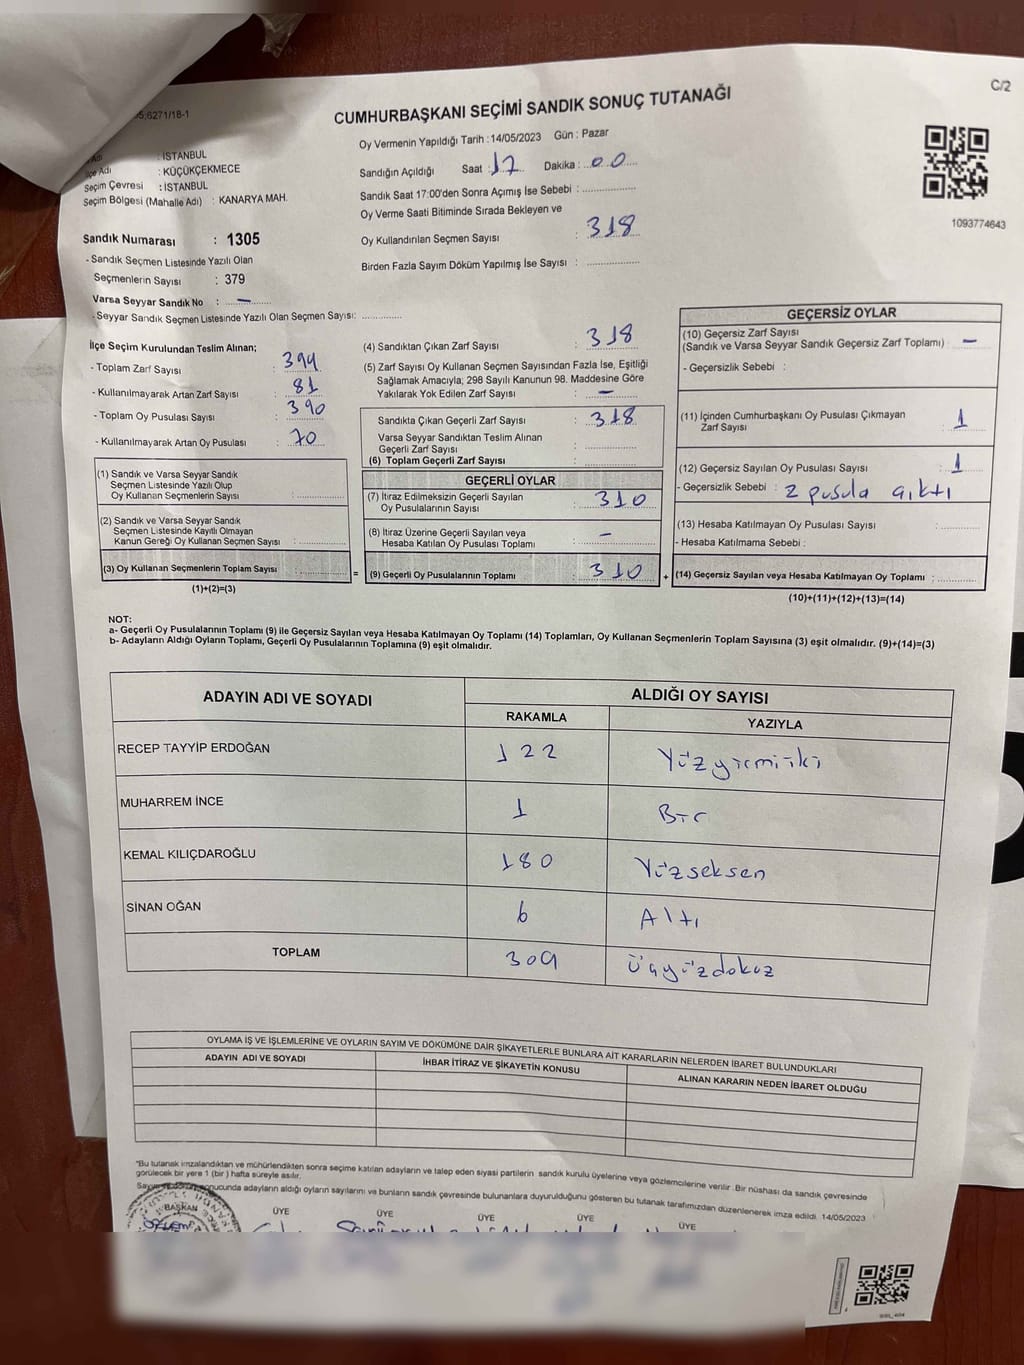 5;6271/18-1
C/2
CUMHURBAŞKANI SEÇİMİ SANDIK SONUÇ TUTANAĞI
Adı : İSTANBUL
İlçe Adı : KÜÇÜKÇEKMECE
Seçim Çevresi : İSTANBUL
Seçim Bölgesi (Mahalle Adı) : KANARYA MAH.
Oy Vermenin Yapıldığı Tarih : 14/05/2023 Gün : Pazar
Sandığın Açıldığı Saat : 17 Dakika : 00
Sandık Saat 17:00'den Sonra Açımış İse Sebebi :
Oy Verme Saati Bitiminde Sırada Bekleyen ve
Oy Kullandırılan Seçmen Sayısı : 318
Birden Fazla Sayım Döküm Yapılmış İse Sayısı :
1093774643
Sandık Numarası : 1305
- Sandık Seçmen Listesinde Yazılı Olan
Seçmenlerin Sayısı : 379
Varsa Seyyar Sandık No : —
- Seyyar Sandık Seçmen Listesinde Yazılı Olan Seçmen Sayısı:
İlçe Seçim Kurulundan Teslim Alınan;
- Toplam Zarf Sayısı : 399
- Kullanılmayarak Artan Zarf Sayısı : 81
- Toplam Oy Pusulası Sayısı : 390
- Kullanılmayarak Artan Oy Pusulası : 70
(1) Sandık ve Varsa Seyyar Sandık
Seçmen Listesinde Yazılı Olup
Oy Kullanan Seçmenlerin Sayısı :
(2) Sandık ve Varsa Seyyar Sandık
Seçmen Listesinde Kayıtlı Olmayan
Kanun Gereği Oy Kullanan Seçmen Sayısı :
(3) Oy Kullanan Seçmenlerin Toplam Sayısı :
(1)+(2)=(3)
(4) Sandıktan Çıkan Zarf Sayısı : 318
(5) Zarf Sayısı Oy Kullanan Seçmen Sayısından Fazla İse, Eşitliği
Sağlamak Amacıyla; 298 Sayılı Kanunun 98. Maddesine Göre
Yakılarak Yok Edilen Zarf Sayısı : —
Sandıkta Çıkan Geçerli Zarf Sayısı : 318
Varsa Seyyar Sandıktan Teslim Alınan
Geçerli Zarf Sayısı :
(6) Toplam Geçerli Zarf Sayısı :
GEÇERLİ OYLAR
(7) İtiraz Edilmeksizin Geçerli Sayılan
Oy Pusulalarının Sayısı : 310
(8) İtiraz Üzerine Geçerli Sayılan veya
Hesaba Katılan Oy Pusulası Toplamı : —
= (9) Geçerli Oy Pusulalarının Toplamı : 310
GEÇERSİZ OYLAR
(10) Geçersiz Zarf Sayısı
(Sandık ve Varsa Seyyar Sandık Geçersiz Zarf Toplamı) : —
- Geçersizlik Sebebi :
(11) İçinden Cumhurbaşkanı Oy Pusulası Çıkmayan
Zarf Sayısı : 1
(12) Geçersiz Sayılan Oy Pusulası Sayısı : 1
- Geçersizlik Sebebi : 2 pusula çıktı
(13) Hesaba Katılmayan Oy Pusulası Sayısı :
- Hesaba Katılmama Sebebi :
+ (14) Geçersiz Sayılan veya Hesaba Katılmayan Oy Toplamı :
(10)+(11)+(12)+(13)=(14)
NOT:
a- Geçerli Oy Pusulalarının Toplamı (9) ile Geçersiz Sayılan veya Hesaba Katılmayan Oy Toplamı (14) Toplamları, Oy Kullanan Seçmenlerin Toplam Sayısına (3) eşit olmalıdır. (9)+(14)=(3)
b- Adayların Aldığı Oyların Toplamı, Geçerli Oy Pusulalarının Toplamına (9) eşit olmalıdır.
ADAYIN ADI VE SOYADI
ALDIĞI OY SAYISI
RAKAMLA YAZIYLA
RECEP TAYYİP ERDOĞAN 122 Yüzyirmiiki
MUHARREM İNCE 1 Bir
KEMAL KILIÇDAROĞLU 180 Yüzseksen
SİNAN OĞAN 6 Altı
TOPLAM 309 Üçyüzdokuz
OYLAMA İŞ VE İŞLEMLERİNE VE OYLARIN SAYIM VE DÖKÜMÜNE DAİR ŞİKAYETLERLE BUNLARA AİT KARARLARIN NELERDEN İBARET BULUNDUKLARI
ADAYIN ADI VE SOYADI İHBAR İTİRAZ VE ŞİKAYETİN KONUSU ALINAN KARARIN NEDEN İBARET OLDUĞU
"Bu tutanak imzalandıktan ve mühürlendikten sonra seçime katılan adayların ve talep eden siyasi partilerin sandık kurulu üyelerine veya gözlemcilerine verilir. Bir nüshası da sandık çevresinde
görülecek bir yere 1 (bir) hafta süreyle asılır.
sonucunda adayların aldığı oyların sayılarını ve bunların sandık çevresinde bulunanlara duyurulduğunu gösteren bu tutanak tarafımızdan düzenlenerek imza edildi. 14/05/2023
BAŞKAN ÜYE ÜYE ÜYE ÜYE ÜYE